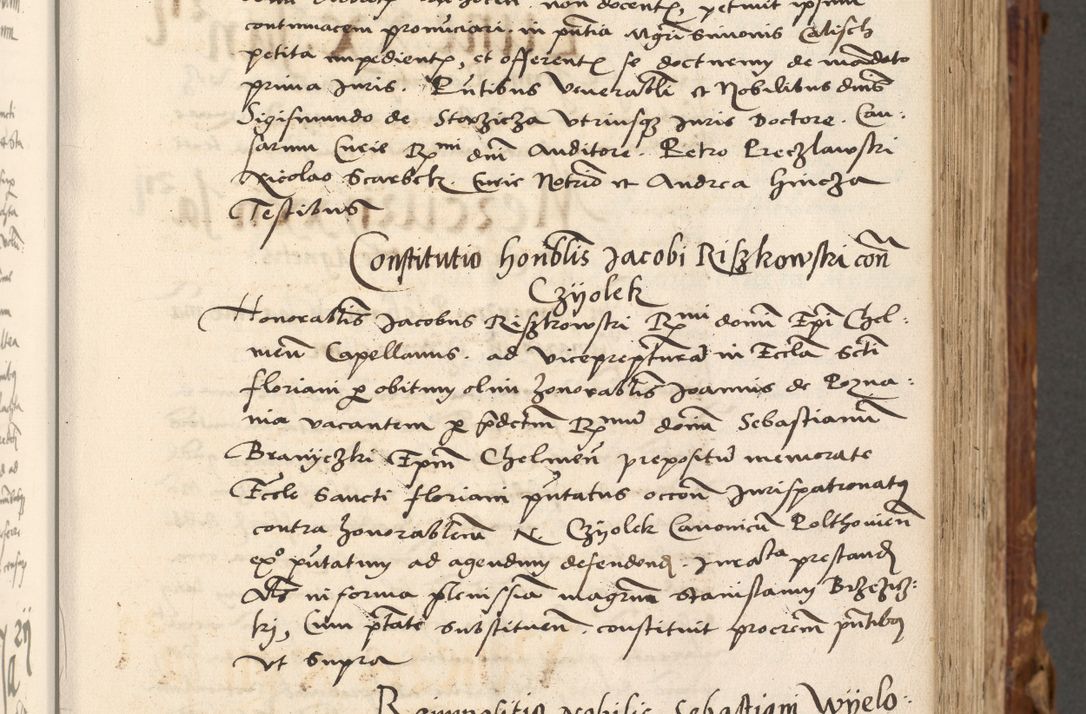 contumacem pronunciari. in pñtia Mgrĩ Simonis Calisch
petita impedientꝭ, et offerentꝭ se docturum de mandato
prima Juris. Pñtibus Venerabĩli et Nobilibus dñis
Sigismundo de Stazicza Vtriusqꝫ Juris Doctore. Cau-
sarum Curie Rmi dñi Auditore. Petro Preczlawski
Nicolao Scarbek. Curie Notariõ et Andrea Hincza
Testibus
Constitutio honbĩlis Jacobi Riszkowski con̄
Czÿolek
Honorabĩlis Jacobus Riszkowski Rmi domĩ Epĩ Chel-
meñ Capellanus. ad viceprep̃turã in Ecclã Sctĩ
floriani ꝑ obitum olim honorabĩlis Joannis de Pozna-
nia vacantem ꝑ p̃dctm̃ Rmum domĩ Sebastianũ
Branÿczki Epm̃ Chelmeñ prepositũ memorate
Eccle Sancti floriani p̃ntatus occoñ Jurispatronatꝰ
contra honorablem̃ N. Czÿolek Canonicũ Polthovieñ
exº p̃ntatum ad agendum defendendꝭ. Jurcãta prestandꝭ
Als̃ in forma plenissiã magrum̃ Stanislaum Brzezicz-
ki, Cum ptãte substitueñ. constituit procrem̃ p̃ntibꝰ
vt supra
nobilis Sebastiani Wÿelo-